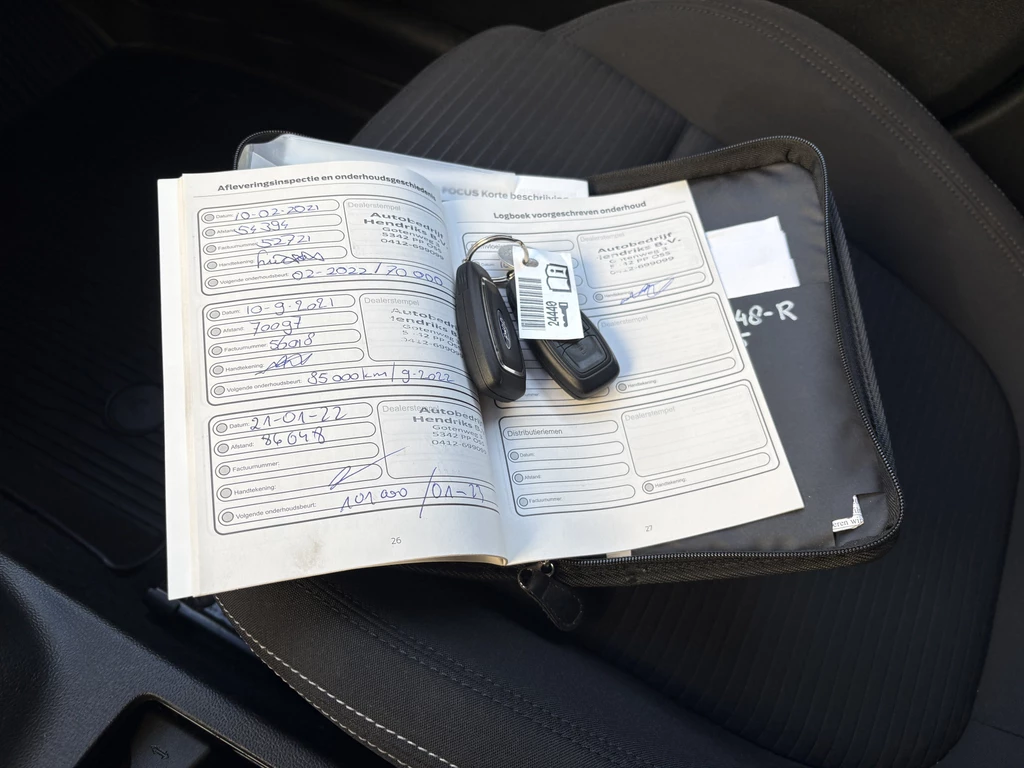 Afleveringsinspectie en onderhoudsgeschiedenis
Datum: 10-02-2021
Afstand: 54394
Factuurnummer: 52721
Handtekening:
Volgende onderhoudsbeurt: 02-2022 / 70 000
Dealerstempel
Autobedrijf
Hendriks B.V.
Gotenweg 3
5342 PP OSS
0412-699099
Datum: 10-9-2021
Afstand: 70097
Factuurnummer: 56018
Handtekening:
Volgende onderhoudsbeurt: 85 000 km / 9-2022
Dealerstempel
Autobedrijf
Hendriks B.V.
Gotenweg 3
5 12 PP OSS
0412-699099
Datum: 21-01-22
Afstand: 86048
Factuurnummer:
Handtekening:
Volgende onderhoudsbeurt: 101 000 / 01-2
Dealerstempel
Autobedrijf
Hendriks
Gotenweg 3
5342 PP OSS
0412-699099
26
FOCUS Korte beschrijving
Logboek voorgeschreven onderhoud
Dealerstempel
Autobedrijf
Hendriks B.V.
Gotenweg 3
5 12 PP OSS
0412-699099
Handtekening:
Dealerstempel
Handtekening:
Distributieriemen
Datum:
Afstand:
Factuurnummer:
Dealerstempel
Handtekening:
27
24440
Ford
48-R
eren wi